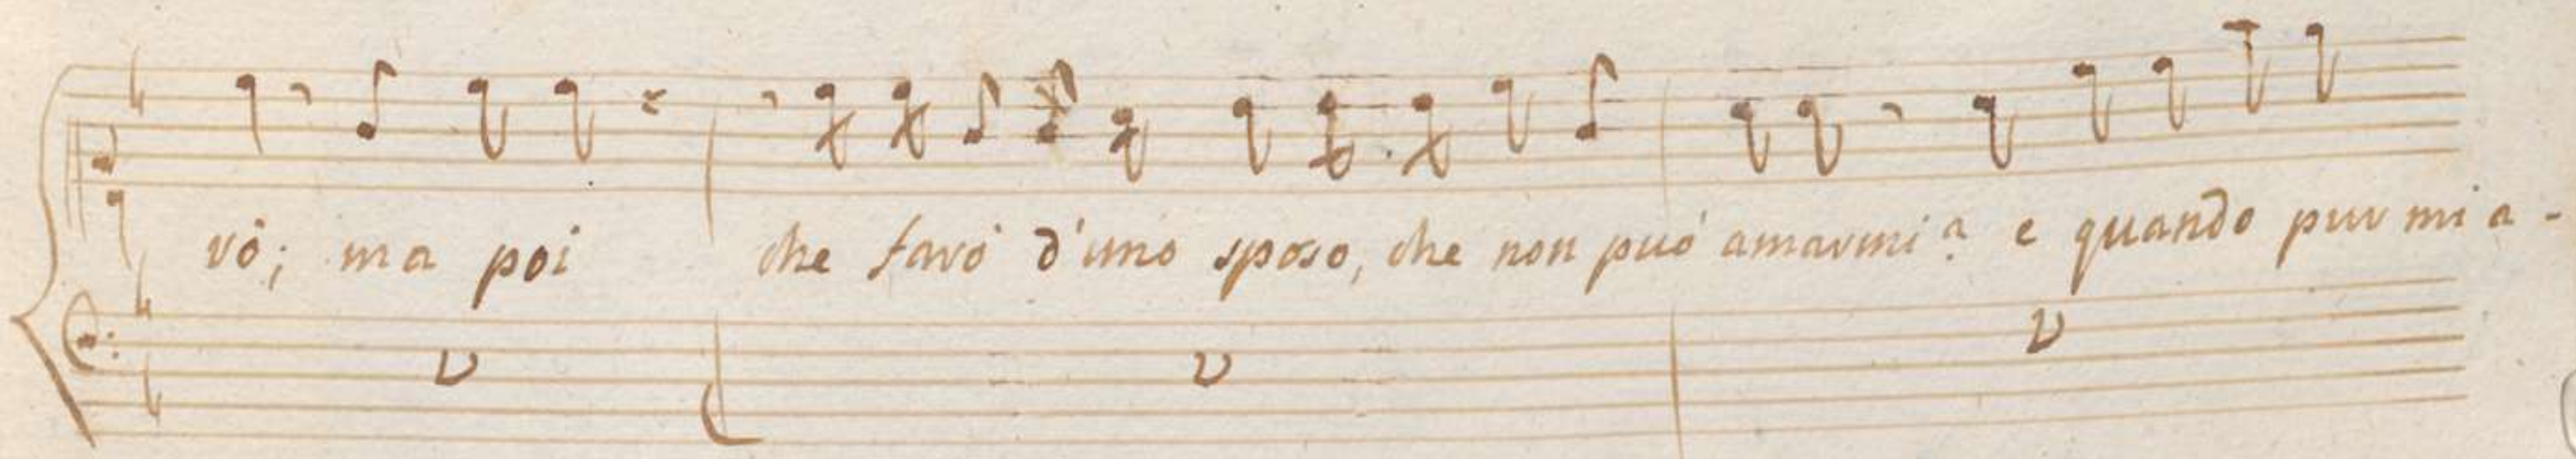 rò; ma poi che farò d'uno sposo, che non può amarmi? e quando pur mi a-